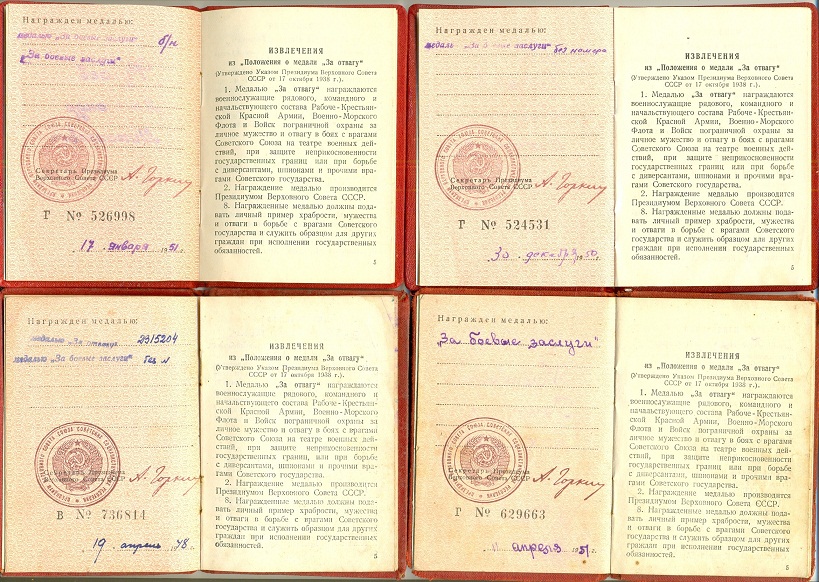 Награжден медалью:
медалью „За боевые заслуги" б/н
„За боевые заслуги"
Секретарь Президиума
Верховного Совета СССР
А. Горкин
Г № 526998
17 января 1951 г.
ИЗВЛЕЧЕНИЯ
из „Положения о медали „За отвагу"
(Утверждено Указом Президиума Верховного Совета
СССР от 17 октября 1938 г.).
1. Медалью „За отвагу" награждаются
военнослужащие рядового, командного и
начальствующего состава Рабоче-Крестьян-
ской Красной Армии, Военно-Морского
Флота и Войск пограничной охраны за
личное мужество и отвагу в боях с врагами
Советского Союза на театре военных дей-
ствий, при защите неприкосновенности
государственных границ или при борьбе
с диверсантами, шпионами и прочими вра-
гами Советского государства.
2. Награждение медалью производится
Президиумом Верховного Совета СССР.
8. Награжденные медалью должны пода-
вать личный пример храбрости, мужества
и отваги в борьбе с врагами Советского
государства и служить образцом для других
граждан при исполнении государственных
обязанностей.
5
Награжден медалью:
медаль „За боевые заслуги" без номера
Секретарь Президиума
Верховного Совета СССР
А. Горкин
Г № 524531
30 декабря 1950 г.
ИЗВЛЕЧЕНИЯ
из „Положения о медали „За отвагу"
(Утверждено Указом Президиума Верховного Совета
СССР от 17 октября 1938 г.).
1. Медалью „За отвагу" награждаются
военнослужащие рядового, командного и
начальствующего состава Рабоче-Крестьян-
ской Красной Армии, Военно-Морского
Флота и Войск пограничной охраны за
личное мужество и отвагу в боях с врагами
Советского Союза на театре военных дей-
ствий, при защите неприкосновенности
государственных границ или при борьбе
с диверсантами, шпионами и прочими вра-
гами Советского государства.
2. Награждение медалью производится
Президиумом Верховного Совета СССР.
8. Награжденные медалью должны пода-
вать личный пример храбрости, мужества
и отваги в борьбе с врагами Советского
государства и служить образцом для других
граждан при исполнении государственных
обязанностей.
5
Награжден медалью:
медалью „За отвагу" 2315204
медалью „За боевые заслуги" без №
Секретарь Президиума
Верховного Совета СССР
А. Горкин
В № 736814
19 апрель 48 г.
ИЗВЛЕЧЕНИЯ
из „Положения о медали „За отвагу"
(Утверждено Указом Президиума Верховного Совета
СССР от 17 октября 1938 г.).
1. Медалью „За отвагу" награждаются
военнослужащие рядового, командного и
начальствующего состава Рабоче-Крестьян-
ской Красной Армии, Военно-Морского
Флота и Войск пограничной охраны за
личное мужество и отвагу в боях с врагами
Советского Союза на театре военных дей-
ствий, при защите неприкосновенности
государственных границ или при борьбе
с диверсантами, шпионами и прочими вра-
гами Советского государства.
2. Награждение медалью производится
Президиумом Верховного Совета СССР.
8. Награжденные медалью должны пода-
вать личный пример храбрости, мужества
и отваги в борьбе с врагами Советского
государства и служить образцом для других
граждан при исполнении государственных
обязанностей.
5
Награжден медалью:
„За боевые заслуги"
Секретарь Президиума
Верховного Совета СССР
А. Горкин
Г № 629663
11 апреля 1951 г.
ИЗВЛЕЧЕНИЯ
из „Положения о медали „За отвагу"
(Утверждено Указом Президиума Верховного Совета
СССР от 17 октября 1938 г.).
1. Медалью „За отвагу" награждаются
военнослужащие рядового, командного и
начальствующего состава Рабоче-Крестьян-
ской Красной Армии, Военно-Морского
Флота и Войск пограничной охраны за
личное мужество и отвагу в боях с врагами
Советского Союза на театре военных дей-
ствий, при защите неприкосновенности
государственных границ или при борьбе
с диверсантами, шпионами и прочими вра-
гами Советского государства.
2. Награждение медалью производится
Президиумом Верховного Совета СССР.
8. Награжденные медалью должны пода-
вать личный пример храбрости, мужества
и отваги в борьбе с врагами Советского
государства и служить образцом для других
граждан при исполнении государственных
обязанностей.
5